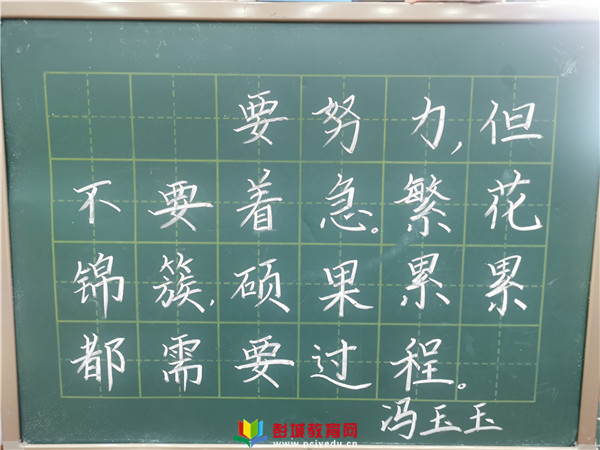 要努力，但
不要着急。繁花
锦簇，硕果累累
都需要过程。
冯玉玉
彭城教育网
www.pcjyedu.cn